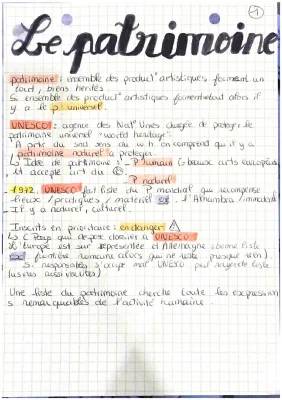 1
Le patrimoine
patrimoine : ensemble des product° artistiques formant un
tout, biens hérités
ensemble des product° artistiques alors il
y a le p° universel.
UNESCO : agence des Nat° Unies chargée de protéger le
patrimoine universel "world heritage".
A partir du snd sens du w.h on comprend qu'il y a
patrimoine naturel à protéger
↳ Idée de patrimoine : - P humain (beaux arts européens
et accepte art du ©.
- P naturel
- 1972, UNESCO fait liste du P mondial qui récompense
lieux / prodiges / matériel ex. l'Alhambra / immatériel
- Il y a naturel, culturel.
- Inscrits en prioritaire : en danger ⚠
↳ C Pays qui dépot dossier à UNESCO
L'Europe est sur représentée et Allemagne 2ème liste
ex romaine alors qui ne reste presque rien).
↳ responsables s'occupe mal UNESCO peut liste
aussi
Une liste du patrimoine cherche toute les expressions
remarquables de l'activité humaine.